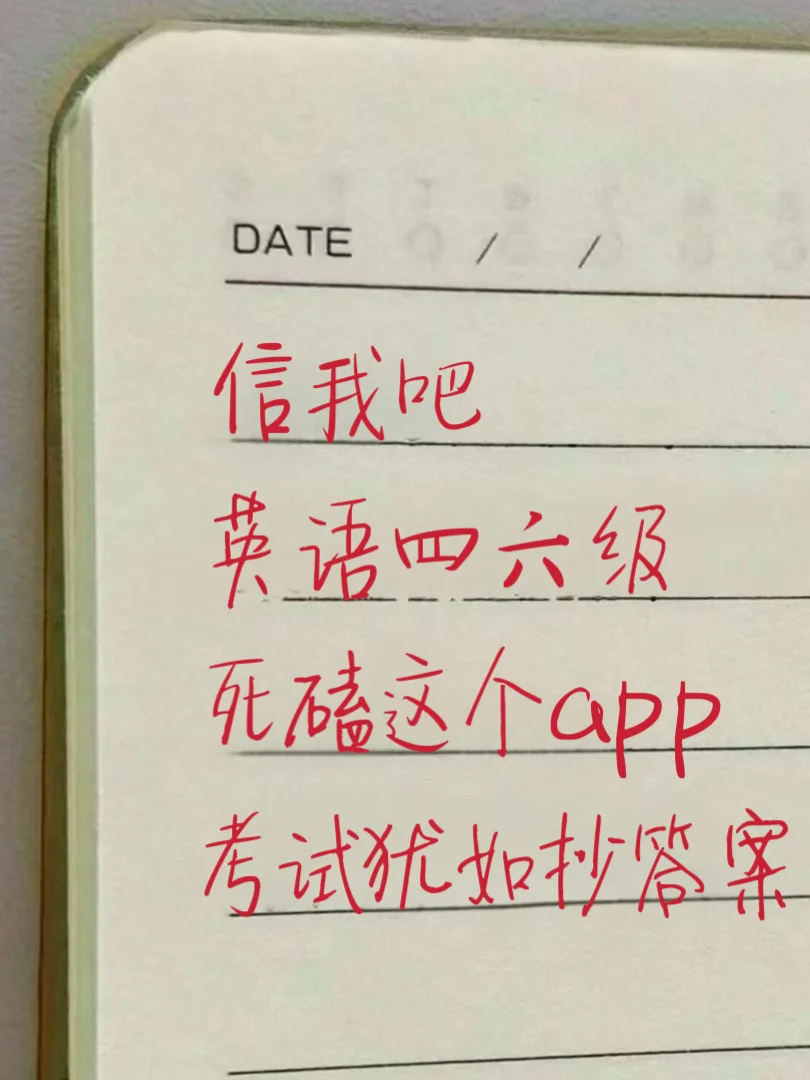 DATE / /
信我吧
英语四六级
死磕这个app
考试犹如抄答案